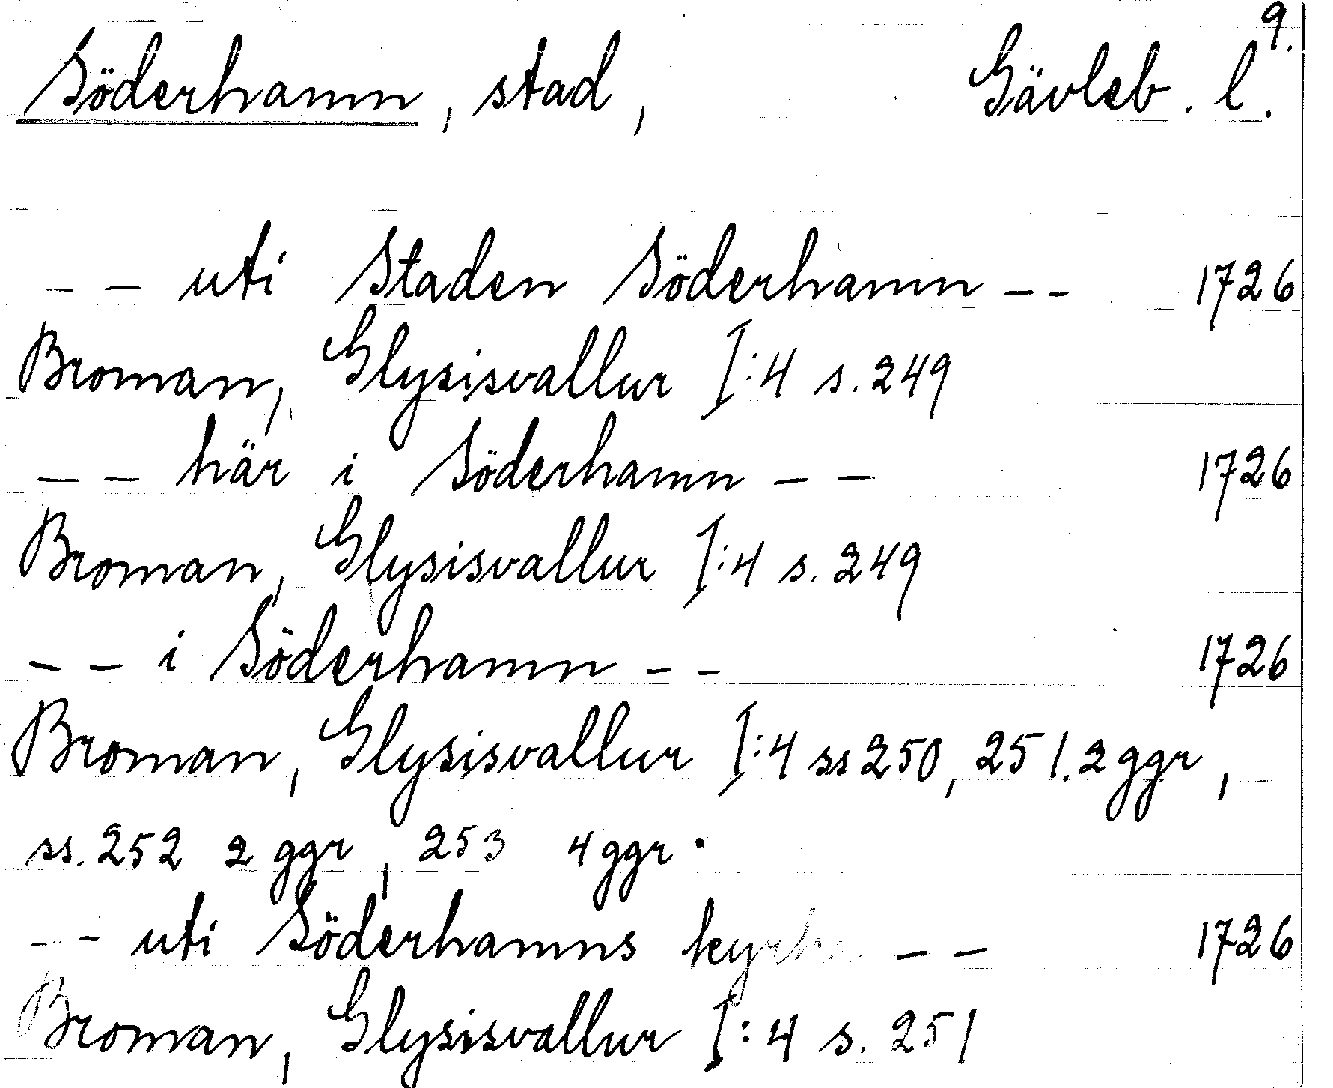 9.
Söderhamn, stad, Gävleb. l.
-- uti Staden Söderhamn -- 1726
Broman, Glysisvallur I:4 s. 249
-- här i Söderhamn -- 1726
Broman, Glysisvallur I:4 s. 249
-- i Söderhamn -- 1726
Broman, Glysisvallur I:4 ss 250, 251. 2 ggr,
ss. 252 2 ggr, 253 4 ggr.
-- uti Söderhamns kyrka -- 1726
Broman, Glysisvallur I:4 s. 251